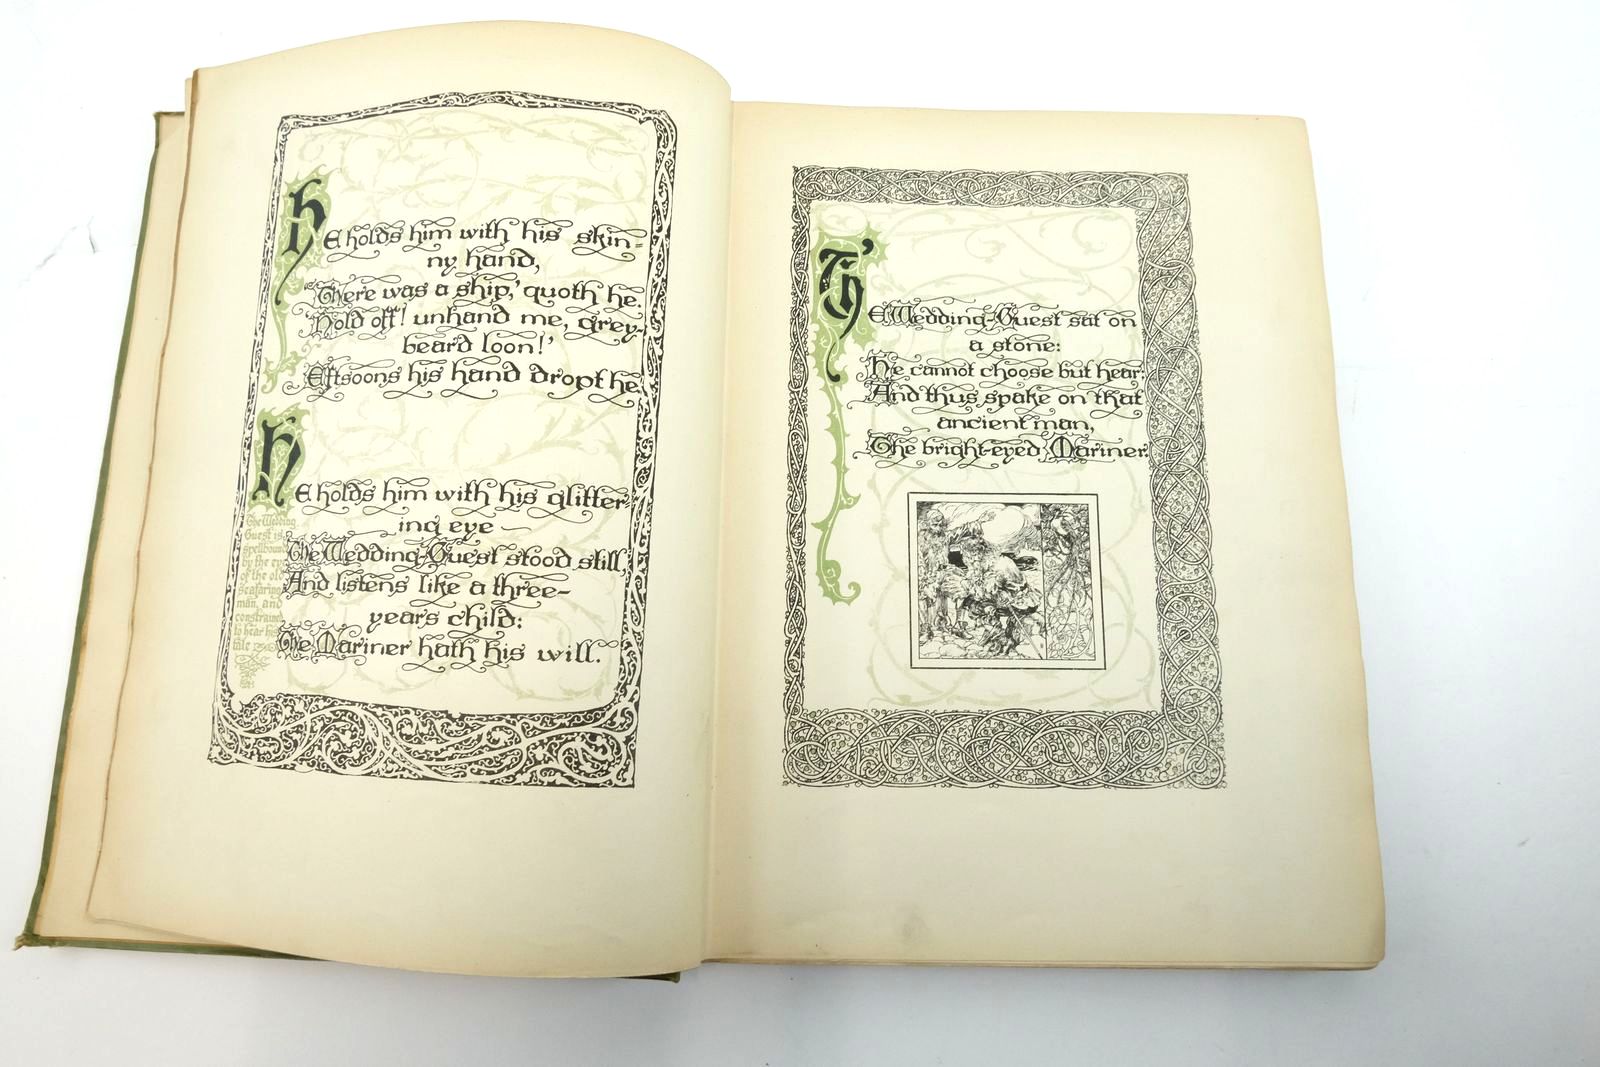 He holds him with his skin=
ny hand,
'There was a ship,' quoth he.
'Hold off! unhand me, grey-
beard loon!'
Eftsoons his hand dropt he.
He holds him with his glitter-
ing eye —
The Wedding-Guest stood still,
And listens like a three-
years child:
The Mariner hath his will.
The Wedding
Guest is
spellbound
by the eye
of the old
seafaring
man, and
constrained
to hear his
tale
The Wedding-Guest sat on
a stone:
He cannot choose but hear:
And thus spake on that
ancient man,
The bright-eyed Mariner.